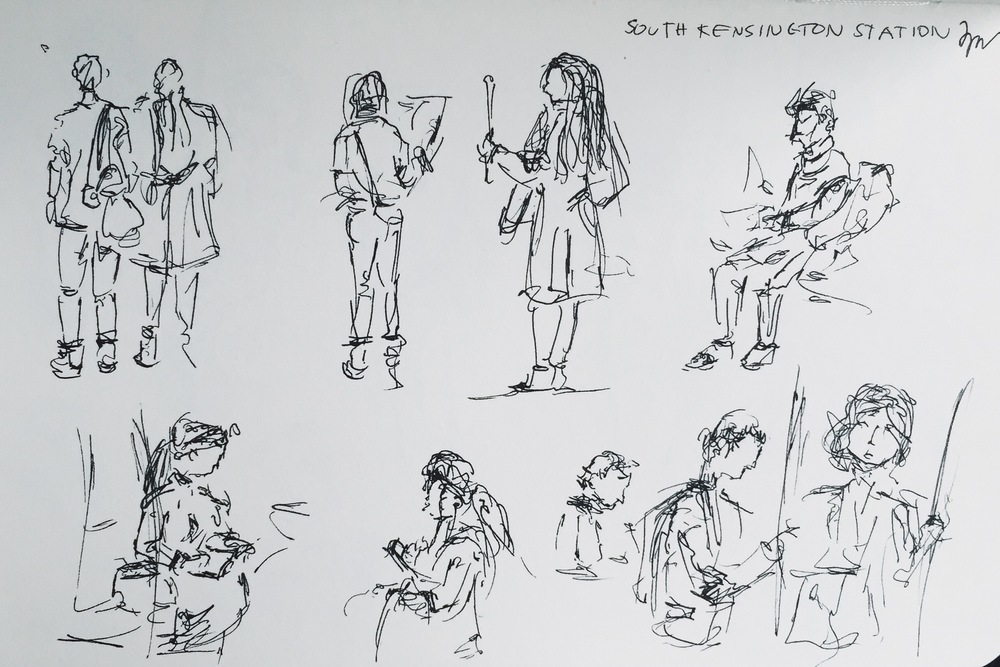 SOUTH KENSINGTON STATION